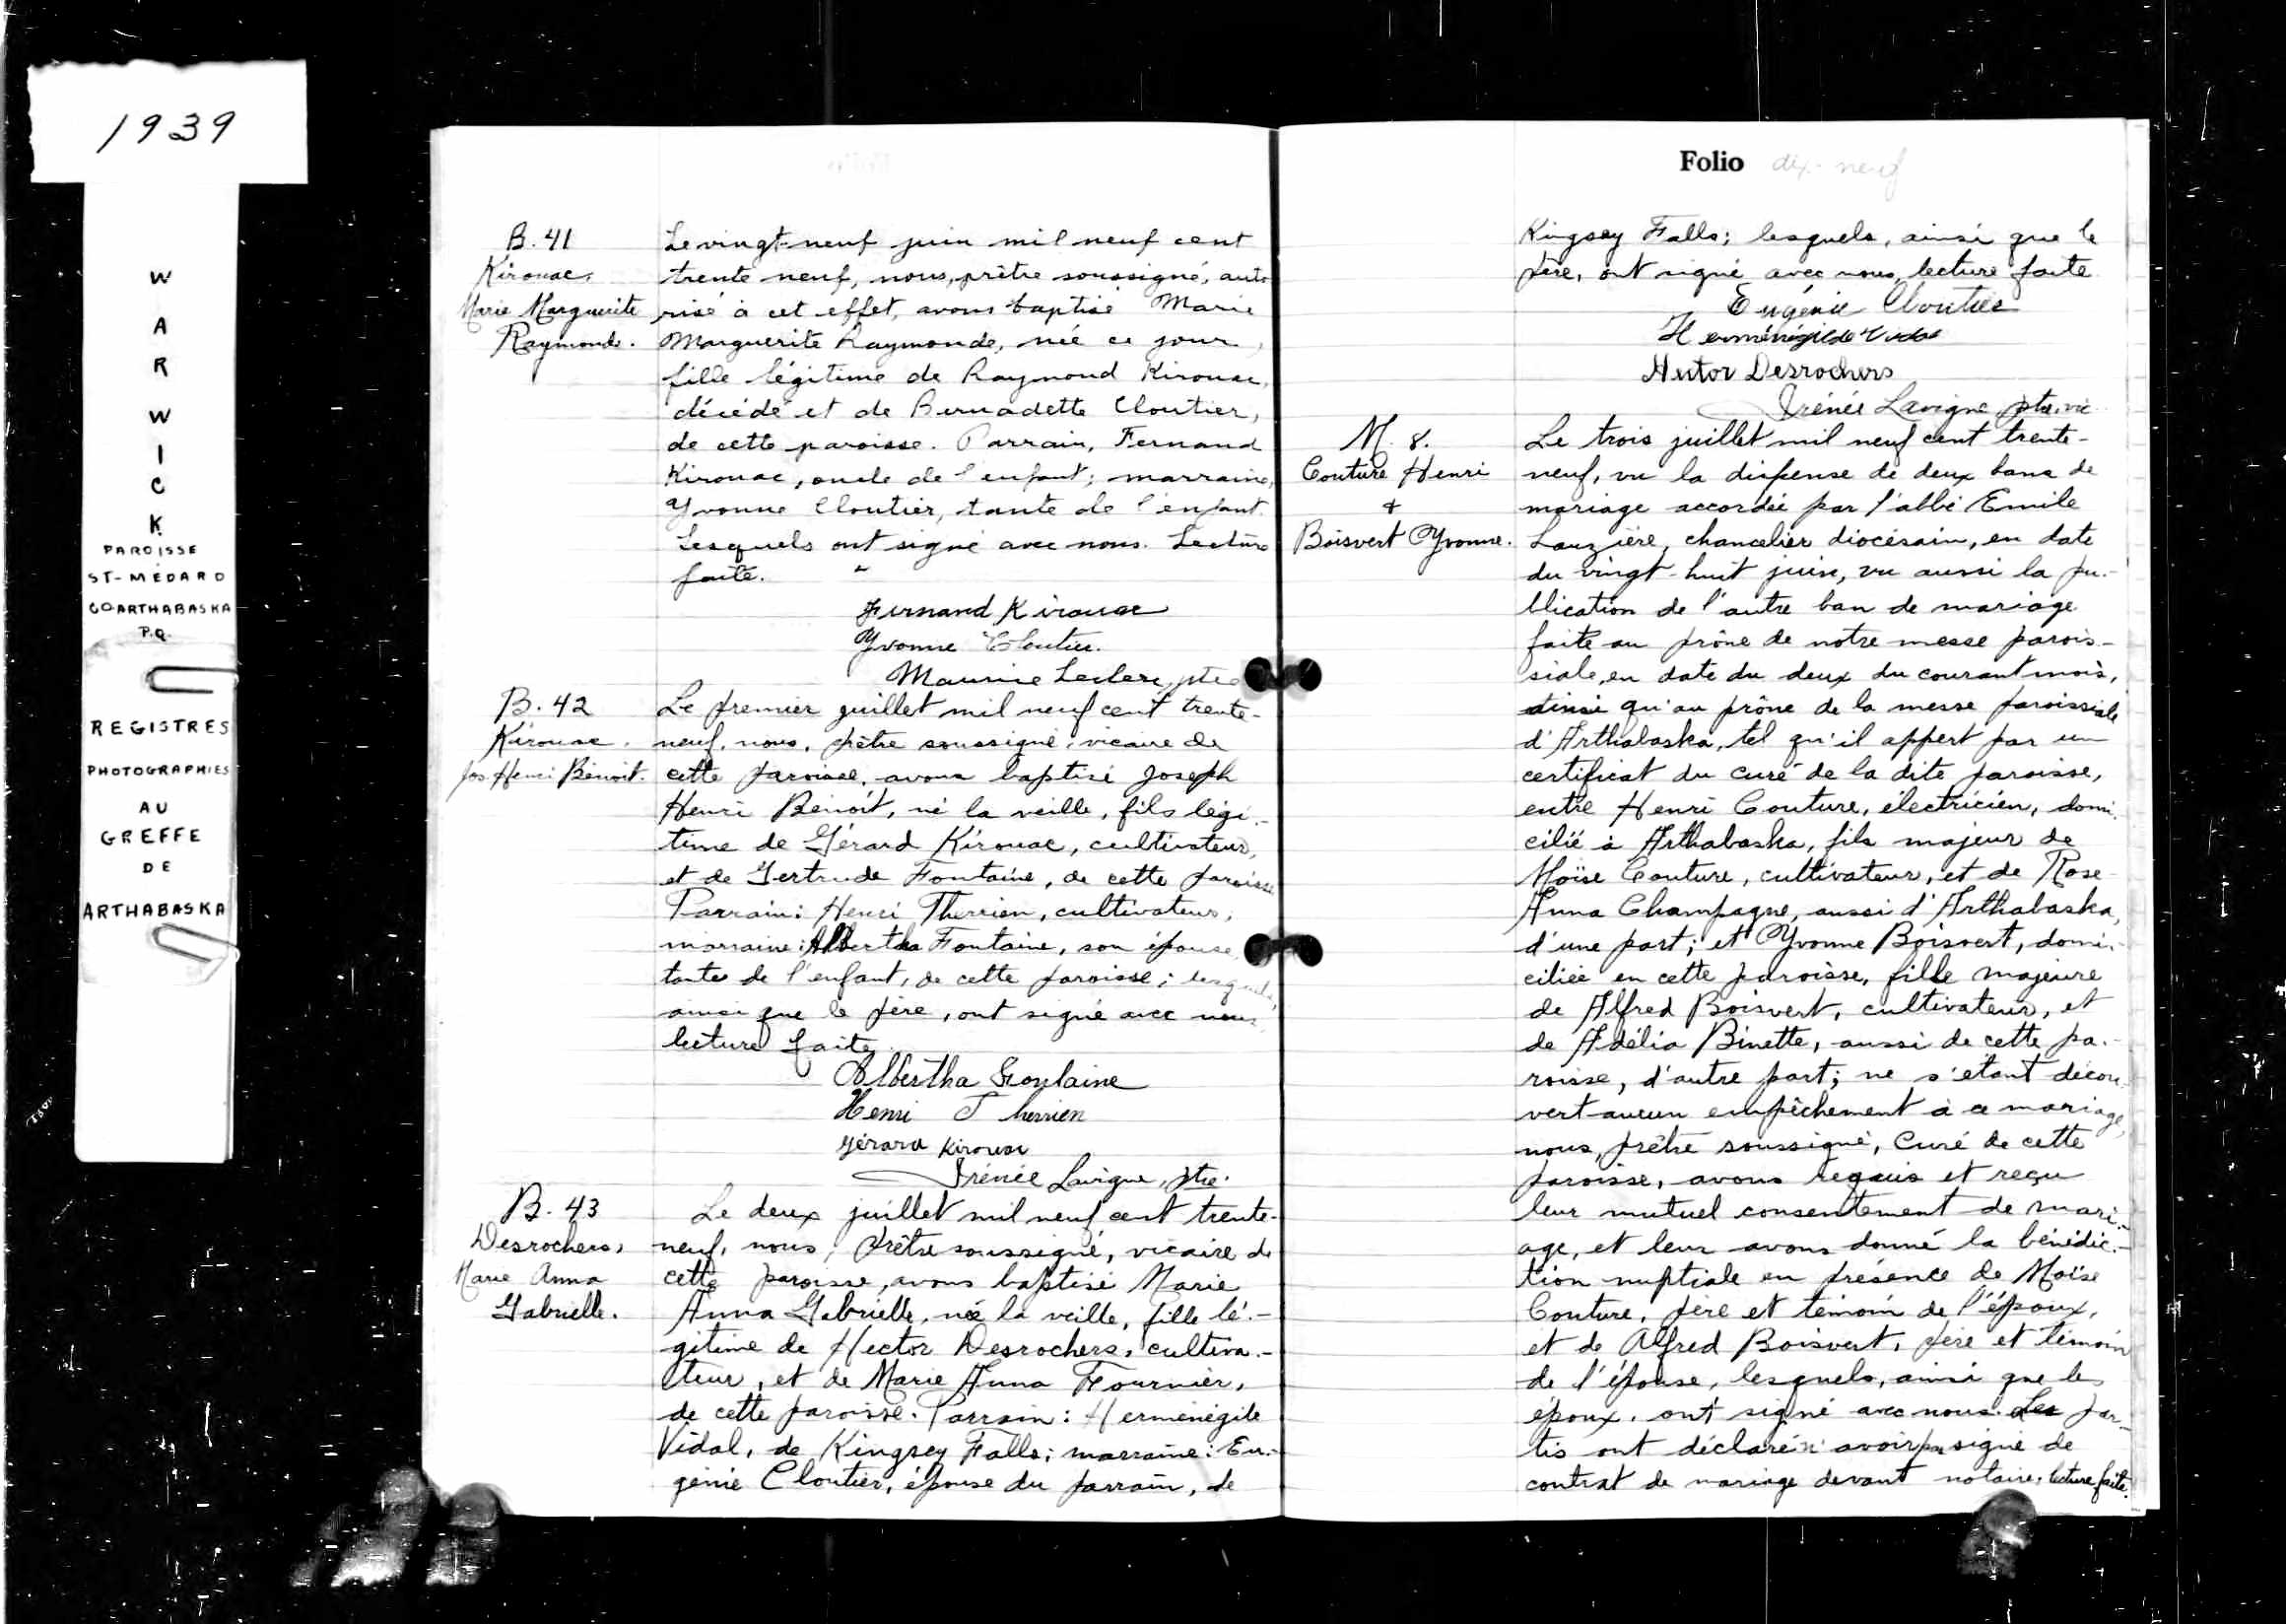 1939
WARWICK
PAROISSE
ST-MÉDARD
CO ARTHABASKA
P.Q.
REGISTRES
PHOTOGRAPHIES
AU
GREFFE
DE
ARTHABASKA
B. 41
Kirouac,
Marie Marguerite
Raymonde.
Le vingt-neuf juin mil neuf cent
trente neuf, nous, prêtre soussigné, auto
risé à cet effet, avons baptisé Marie
Marguerite Raymonde, née ce jour,
fille légitime de Raymond Kirouac,
décédé et de Bernadette Cloutier,
de cette paroisse. Parrain, Fernand
Kirouac, oncle de l'enfant; marraine,
Yvonne Cloutier, tante de l'enfant.
Lesquels ont signé avec nous. Lecture
faite.
Fernand Kirouac
Yvonne Cloutier.
Maurice Leclerc, ptre
B. 42
Kirouac.
Jos. Henri Benoit.
Le premier juillet mil neuf cent trente-
neuf, nous, prêtre soussigné, vicaire de
cette paroisse, avons baptisé Joseph
Henri Benoit, né la veille, fils légi-
time de Gérard Kirouac, cultivateur,
et de Gertrude Fontaine, de cette paroisse
Parrain: Henri Therrien, cultivateur;
marraine: Albertha Fontaine, son épouse,
tante de l'enfant, de cette paroisse; lesquels,
ainsi que le père, ont signé avec nous
lecture faite.
Albertha Fontaine
Henri Therrien
Gérard Kirouac
Irénée Lavigne, ptre.
B. 43
Desrochers,
Marie Anna
Gabrielle.
Le deux juillet mil neuf cent trente-
neuf, nous, prêtre soussigné, vicaire de
cette paroisse, avons baptisé Marie
Anna Gabrielle, née la veille, fille lé-
gitime de Hector Desrochers, cultiva-
teur, et de Marie Anna Fournier,
de cette paroisse. Parrain: Herménégile
Vidal, de Kingsey Falls; marraine: Eu-
génie Cloutier, épouse du parrain, de
Folio dix-neuf
Kingsey Falls; lesquels, ainsi que le
père, ont signé avec nous, lecture faite
Eugénie Cloutier
Herménégilde Vidal
Hector Desrochers
Irénée Lavigne, ptre. vic.
M. 8.
Couture Henri
&
Boisvert Yvonne.
Le trois juillet mil neuf cent trente-
neuf, vu la dispense de deux bans de
mariage accordée par l'abbé Emile
Lauzière, chancelier diocésain, en date
du vingt-huit juin, vu aussi la pu-
blication de l'autre ban de mariage
faite au prône de notre messe parois-
siale, en date du deux du courant mois,
ainsi qu'au prône de la messe paroissiale
d'Arthabaska, tel qu'il appert par un
certificat du curé de la dite paroisse,
entre Henri Couture, électricien, domi-
cilié à Arthabaska, fils majeur de
Moïse Couture, cultivateur, et de Rose-
Anna Champagne, aussi d'Arthabaska,
d'une part; et Yvonne Boisvert, domi-
ciliée en cette paroisse, fille majeure
de Alfred Boisvert, cultivateur, et
de Adélia Binette, aussi de cette pa-
roisse, d'autre part; ne s'étant décou-
vert aucun empêchement à ce mariage,
nous, prêtre soussigné, Curé de cette
paroisse, avons requis et reçu
leur mutuel consentement de mari-
age, et leur avons donné la bénédic-
tion nuptiale en présence de Moïse
Couture, père et témoin de l'époux,
et de Alfred Boisvert, père et témoin
de l'épouse, lesquels, ainsi que les
époux, ont signé avec nous. Les par-
tis ont déclaré n'avoir pas signé de
contrat de mariage devant notaire. lecture faite.